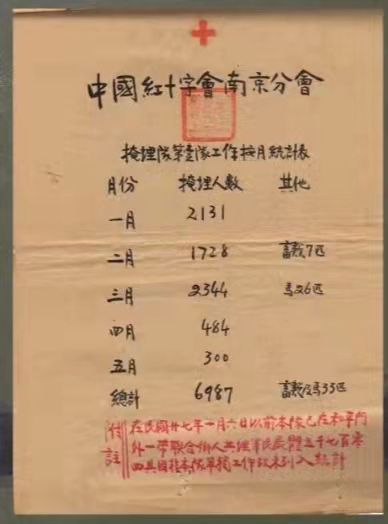 中國紅十字會南京分會
掩埋隊第壹隊工作按月統計表
月份 掩埋人數 其他
一月 2131
二月 1728 7匹
三月 2344 馬26匹
四月 484
五月 300
總計 6987 及馬33匹
付註 在民國廿七年一月六日以前本隊已在和平門
外一帶聯合 人共埋軍民屍體 千七百零
四具因非本隊單獨工作故未列入統計